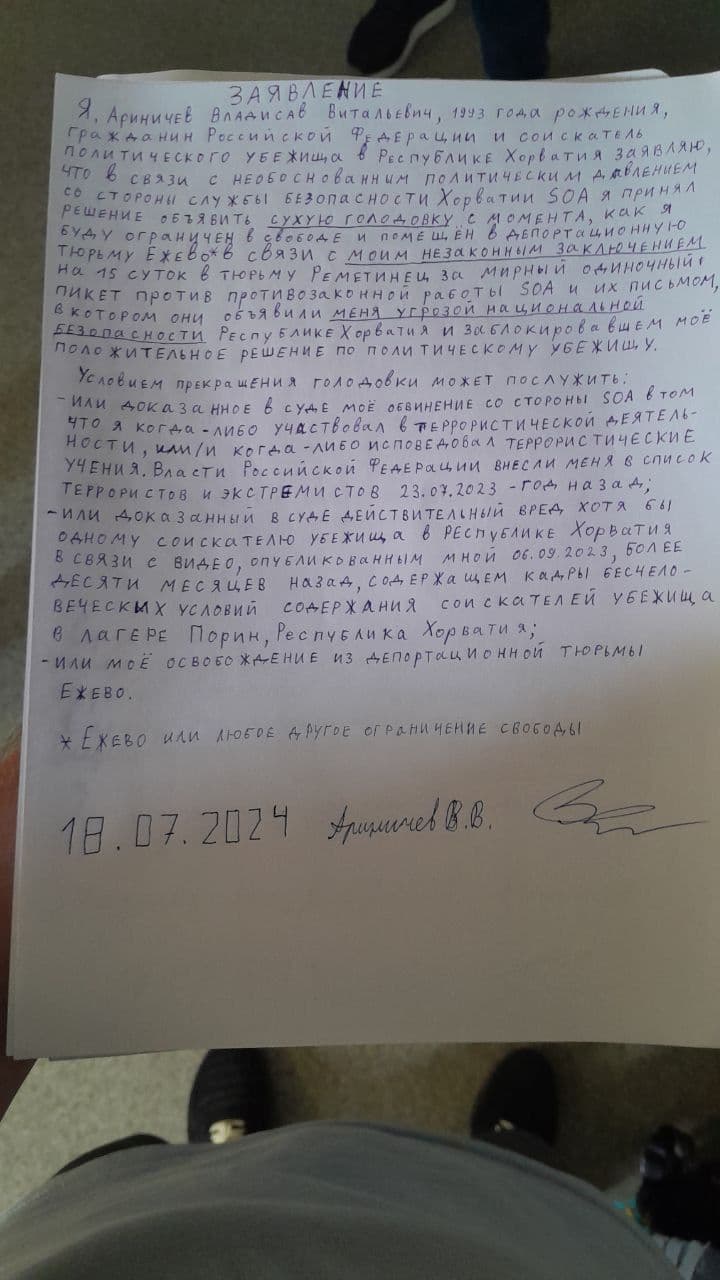 ЗАЯВЛЕНИЕ
Я, Ариничев Владисав Витальевич, 1993 года рождения,
гражданин Российской Федерации и соискатель
политического убежища в Республике Хорватия заявляю,
что в связи с необоснованным политическим давлением
со стороны службы безопасности Хорватии SOA я принял
решение объявить сухую голодовку с момента, как я
буду ограничен в свободе и помещён в депортационную
тюрьму Ежево* в связи с моим незаконным заключением
на 15 суток в тюрьму Реметинец за мирный одиночный
пикет против противозаконной работы SOA и их письмом,
в котором они объявили меня угрозой национальной
безопасности Республике Хорватия и заблокировавшем моё
положительное решение по политическому убежищу.
Условием прекращения голодовки может послужить:
- или доказанное в суде моё обвинение со стороны SOA в том
что я когда-либо участвовал в террористической деятель-
ности, или/и когда-либо исповедовал террористические
учения. Власти Российской Федерации внесли меня в список
террористов и экстремистов 23.07.2023 - год назад;
- или доказанный в суде действительный вред хотя бы
одному соискателю убежища в Республике Хорватия
в связи с видео, опубликованным мной 06.09.2023, более
десяти месяцев назад, содержащем кадры бесчело-
веческих условий содержания соискателей убежища
в лагере Порин, Республика Хорватия;
- или моё освобождение из депортационной тюрьмы
Ежево.
* Ежево или любое другое ограничение свободы
18.07.2024 Ариничев В.В.